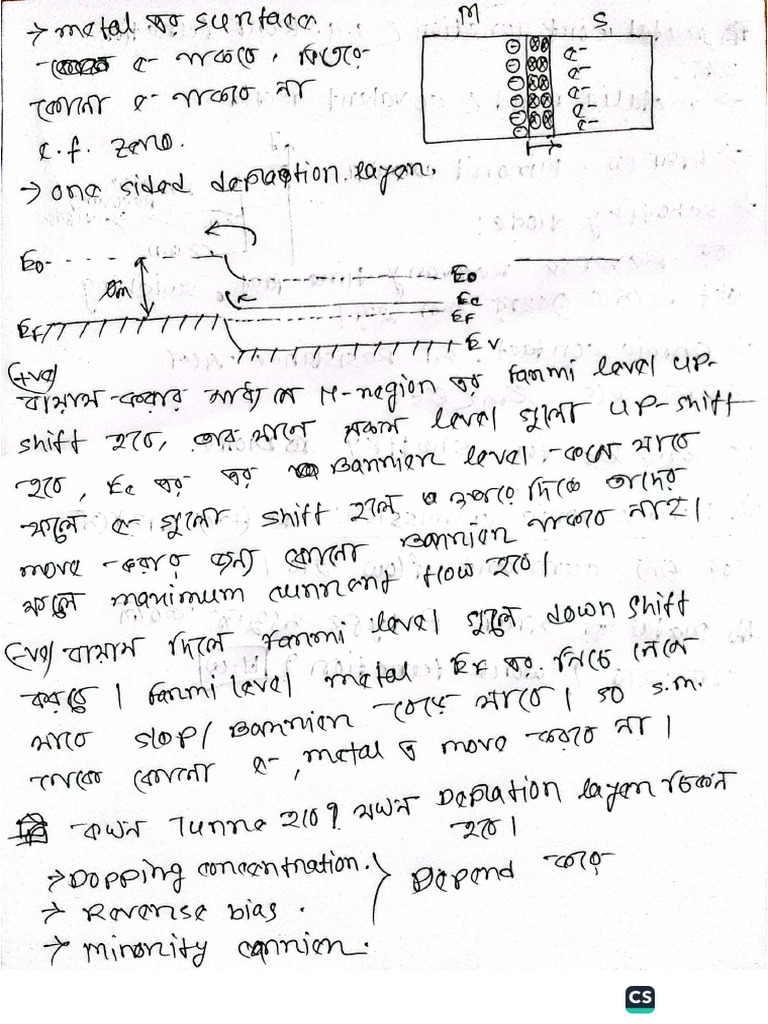 → metal এর surface
e- থাকবে, ভিতরে
কোনো e- থাকবে না
e.f. zero.
→ one sided depletion layer.
M S
e-
e-
e-
e-
e-
E0
Eo
Ec
φm
EF
Ef
Ev
(+ve)
বায়াস করার মাধ্যমে N-region এর farmi level up-
shift হবে, তার মানে সকল level গুলো up-shift
হবে, Ec এর এর Barrier level কমে যাবে
ফলে e- গুলো shift হলে ওপরে দিকে তাদের
move করার জন্য কোনো barrier থাকবে নাহ।
ফলে maximum current flow হবে।
(-ve) বায়াস দিলে farmi level গুলে down shift
করবে। farmi level metal EF এর নিচে নেমে
যাবে slop/ Barrier বেড়ে যাবে। so s.m.
থেকে কোনো e-, metal এ move করবে না।
কখন Tunne হবে? যখন Depletion layer চিকন
হবে।
→ Dopping concentration.
Depend করে
→ Reverse bias.
→ minority carrier.
CS